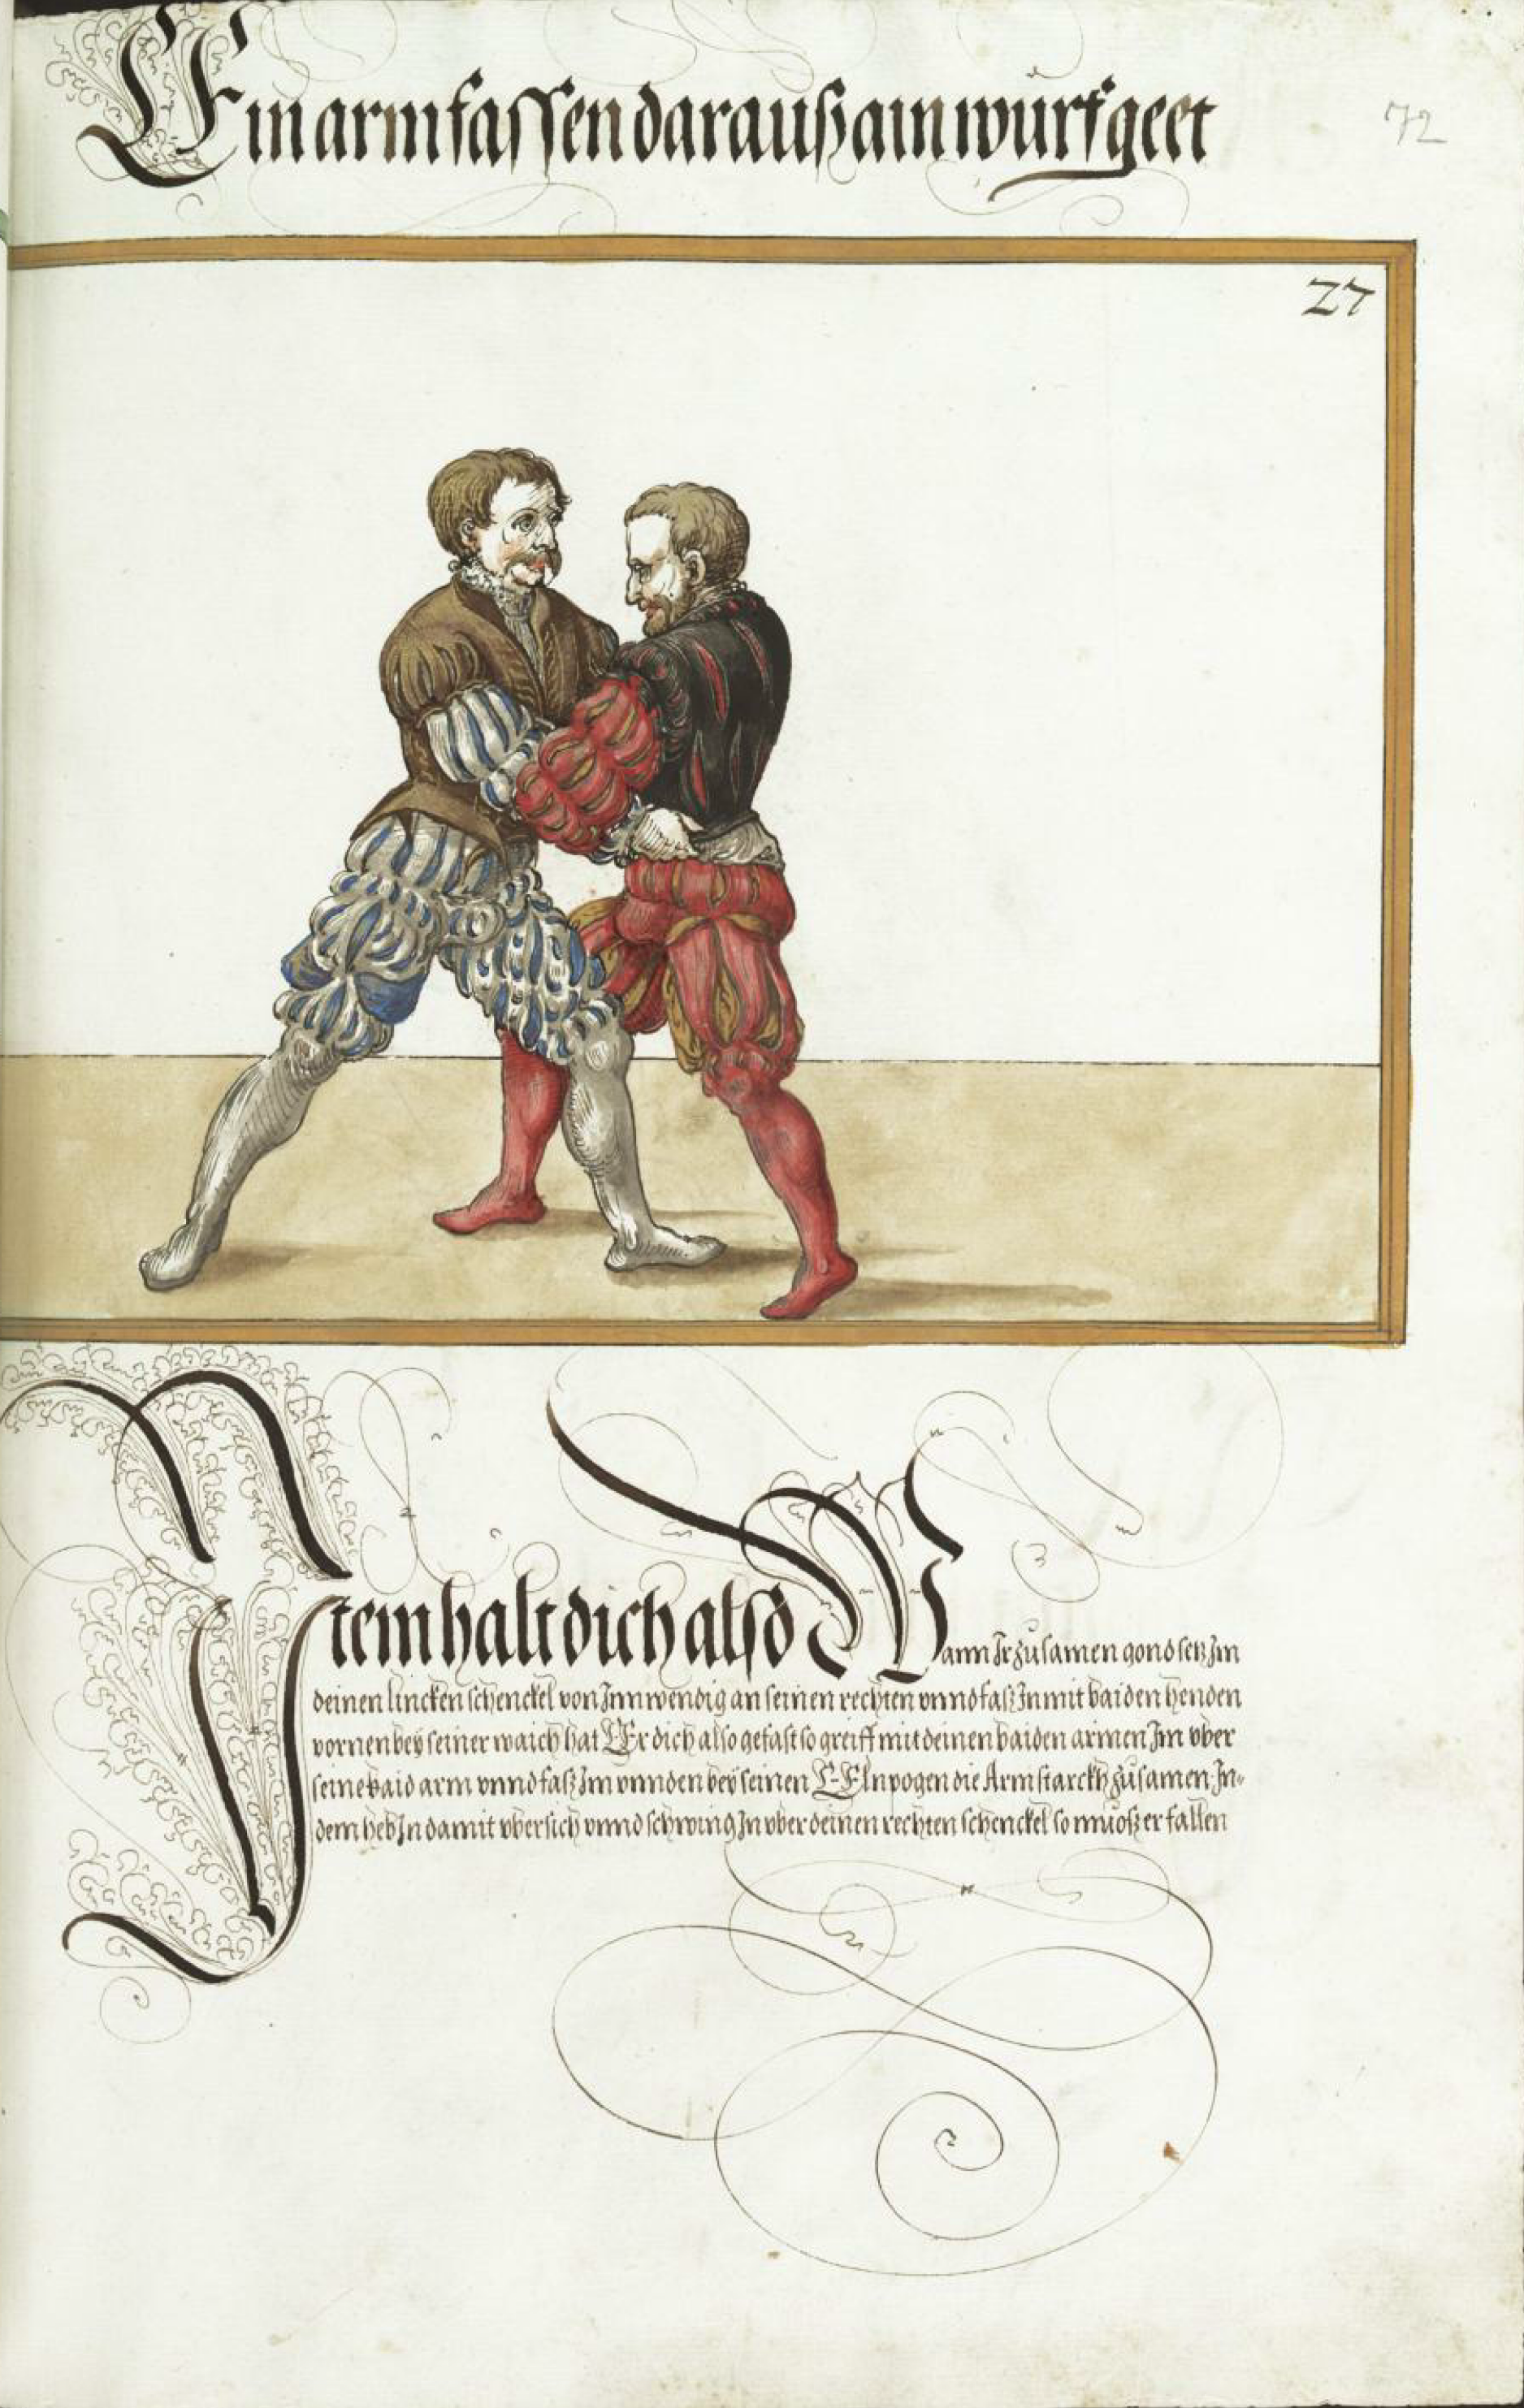 Ein arm fassen darauß ain wurf geet
72
27
Item halt dich also Wann Ir zusamen gond setz Im
deinen lincken schenckel von Innwendig an seinen rechten unnd faß In mit baiden henden
vornen bey seiner waich hat Er dich also gefast so greiff mit deinen baiden armen Im vber
seine baid arm vnnd faß Im vnnden bey seinen Elnpogen die Arm starckh zusamen In-
dem heb In damit vbersich vnnd schwing In vber deinen rechten schenckel so muoß er fallen